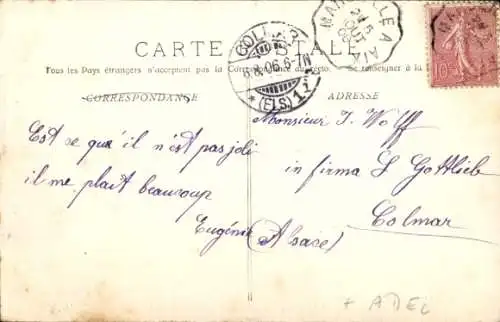 CARTE POSTALE
Tous les Pays étrangers n'acceptent pas la Correspondance au recto. Se renseigner à la
CORRESPONDANCE
ADRESSE
COLMAR
6.8.06.6-7N
* (ELS) 1 *
MARSEILLE A AIX
10
Est ce qu'il n'est pas joli
il me plait beaucoup
Eugénie
Monsieur J. Wolff
in firma L Gottlieb
Colmar
(Alsace)
+ ADEL